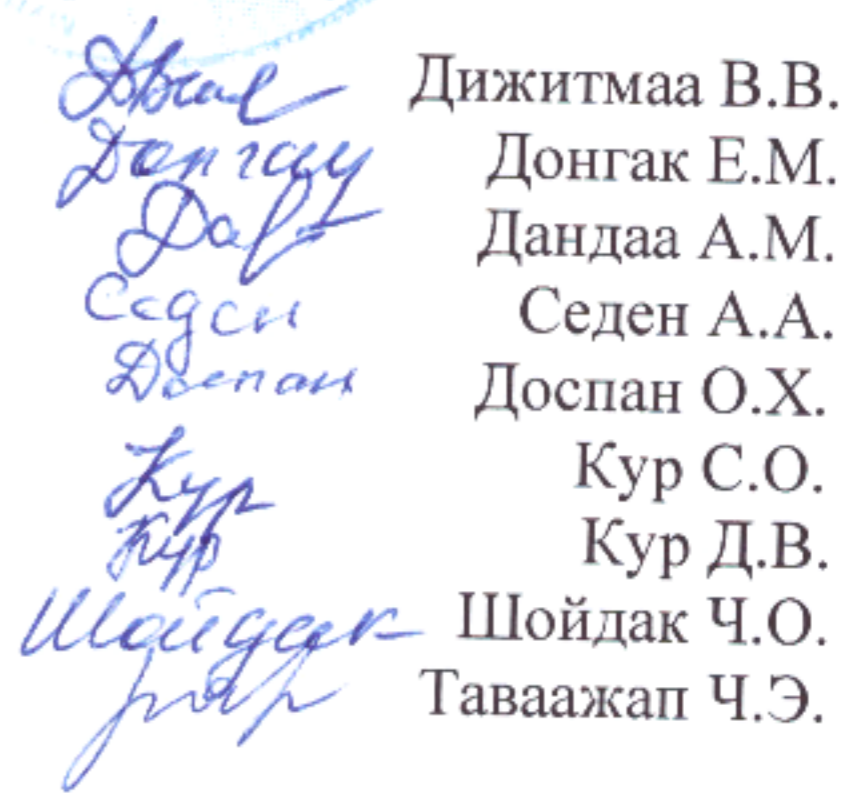 Дижитмаа В.В.
Донгак Донгак Е.М.
Дандаа А.М.
Седен Седен А.А.
Доспан Доспан О.Х.
Кур Кур С.О.
Кур Кур Д.В.
Шойдак Шойдак Ч.О.
Таваажап Ч.Э.